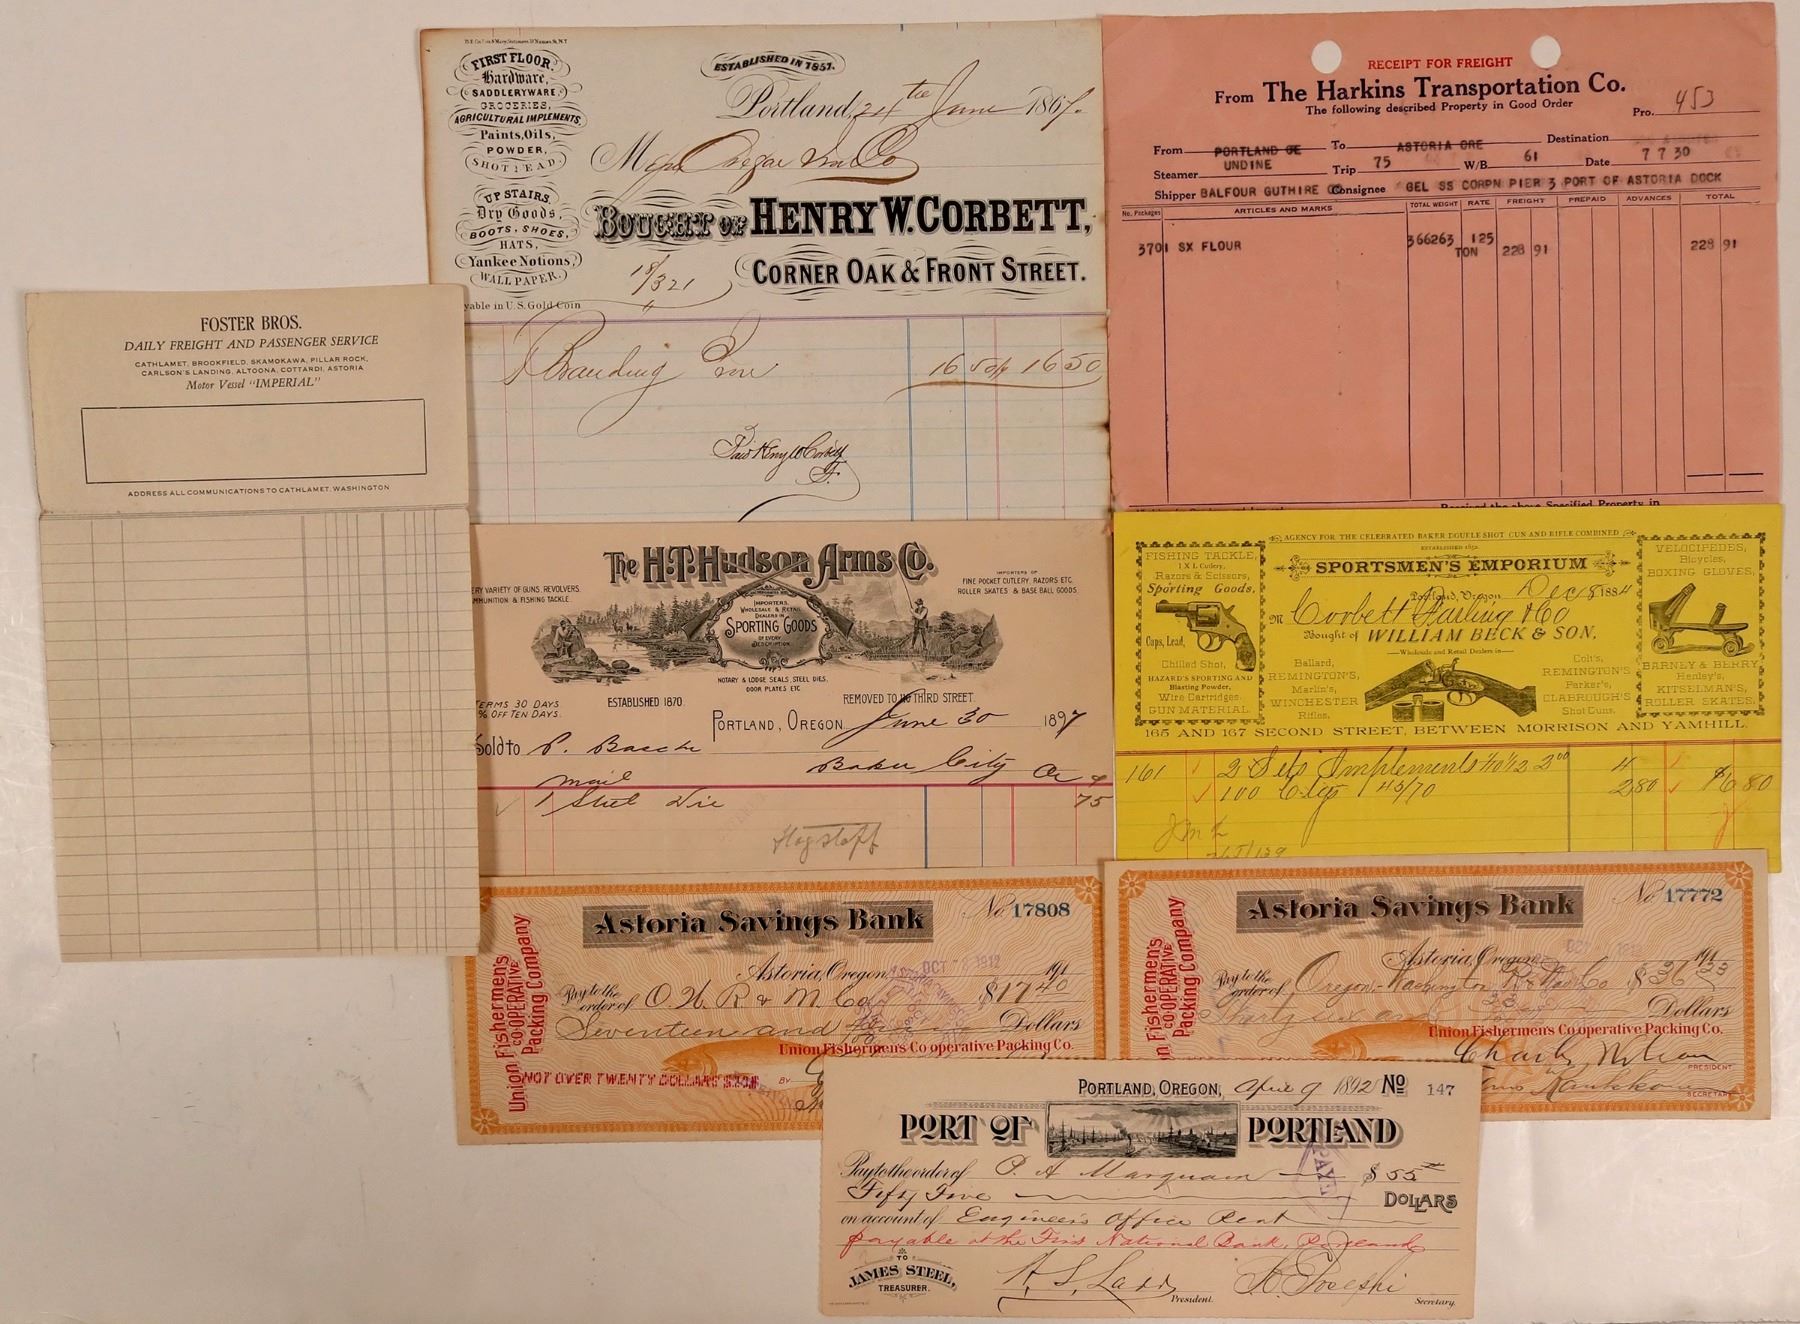 FIRST FLOOR.
Hardware,
SADDLERYWARE,
GROCERIES,
AGRICULTURAL IMPLEMENTS,
Paints, Oils,
POWDER,
SHOT LEAD,
UP STAIRS.
Dry Goods,
BOOTS, SHOES,
HATS,
Yankee Notions,
WALL PAPER,
ESTABLISHED IN 1851.
Portland, 24th June 1867.
Oregon Iron Co
BOUGHT OF HENRY W. CORBETT,
CORNER OAK & FRONT STREET.
yable in U.S. Gold Coin
1 Branding Iron 16 50 16 50
Paid Henry W Corbett
RECEIPT FOR FREIGHT
From The Harkins Transportation Co.
The following described Property in Good Order
Pro. 453
From PORTLAND OE To ASTORIA ORE Destination
Steamer UNDINE Trip 75 W/B 61 Date 7 7 30
Shipper BALFOUR GUTHIRE CO Consignee GEL SS CORPN PIER 3 PORT OF ASTORIA DOCK
No. Packages ARTICLES AND MARKS TOTAL WEIGHT RATE FREIGHT PREPAID ADVANCES TOTAL
3701 SX FLOUR 366263 125 TON 228 91 228 91
Received the above Specified Property in
FOSTER BROS.
DAILY FREIGHT AND PASSENGER SERVICE
CATHLAMET, BROOKFIELD, SKAMOKAWA, PILLAR ROCK,
CARLSON'S LANDING, ALTOONA, COTTARDI, ASTORIA
Motor Vessel "IMPERIAL"
ADDRESS ALL COMMUNICATIONS TO CATHLAMET, WASHINGTON
The H.T. Hudson Arms Co.
ERY VARIETY OF GUNS, REVOLVERS,
MMUNITION & FISHING TACKLE.
IMPORTERS OF
FINE POCKET CUTLERY, RAZORS ETC.
ROLLER SKATES & BASE BALL GOODS.
IMPORTERS,
WHOLESALE & RETAIL
DEALERS IN
SPORTING GOODS
OF EVERY
DESCRIPTION
NOTARY & LODGE SEALS, STEEL DIES,
DOOR PLATES ETC
ERMS 30 DAYS
% OFF TEN DAYS.
ESTABLISHED 1870.
REMOVED TO THIRD STREET.
PORTLAND, OREGON. June 30 1897
Sold to P. Basche
Baker City Or
mail
1 Steel Die 75
Flagstaff
AGENCY FOR THE CELEBRATED BAKER DOUBLE SHOT GUN AND RIFLE COMBINED
ESTABLISHED 1852.
SPORTSMEN'S EMPORIUM
Portland, Oregon Dec 8 1884
M Corbett Failing & Co
Bought of WILLIAM BECK & SON,
Wholesale and Retail Dealers in
FISHING TACKLE,
I X L Cutlery,
Razors & Scissors,
Sporting Goods,
Caps, Lead,
Chilled Shot,
HAZARD'S SPORTING AND
Blasting Powder,
Wire Cartridges.
GUN MATERIAL.
Ballard,
REMINGTON'S,
Marlin's,
WINCHESTER
Rifles,
Colt's,
REMINGTON'S
Parker's,
CLABROUGH'S
Shot Guns.
VELOCIPEDES,
Bicycles,
BOXING GLOVES,
BARNEY & BERRY
Henley's,
KITSELMAN'S,
ROLLER SKATES.
165 AND 167 SECOND STREET, BETWEEN MORRISON AND YAMHILL.
161 2 Sets Implements 40/12 2 00 4
100 Ctgs 45/70 2 80 $6 80
Astoria Savings Bank No 17808
Union Fishermen's
CO-OPERATIVE
Packing Company
Astoria, Oregon, OCT 1912 191
Pay to the order of O. W. R & N. Co $17 40
Seventeen and Dollars
Union Fishermen's Co-operative Packing Co.
NOT OVER TWENTY DOLLARS $20$
BY
Astoria Savings Bank No 17772
Union Fishermen's
CO-OPERATIVE
Packing Company
Astoria, Oregon 191
Pay to the order of Oregon-Washington R & Nav Co $36 33
Thirty six and Dollars
Union Fishermen's Co-operative Packing Co.
Charles Wilson
PRESIDENT
SECRETARY
PORTLAND, OREGON, April 9 1892 No 147
PORT OF PORTLAND
Pay to the order of P. A. Marquam $55
Fifty Five DOLLARS
on account of Engineer's Office Rent
payable at the First National Bank, Portland
TO
JAMES STEEL,
TREASURER.
W. S. Ladd
President.
Secretary.